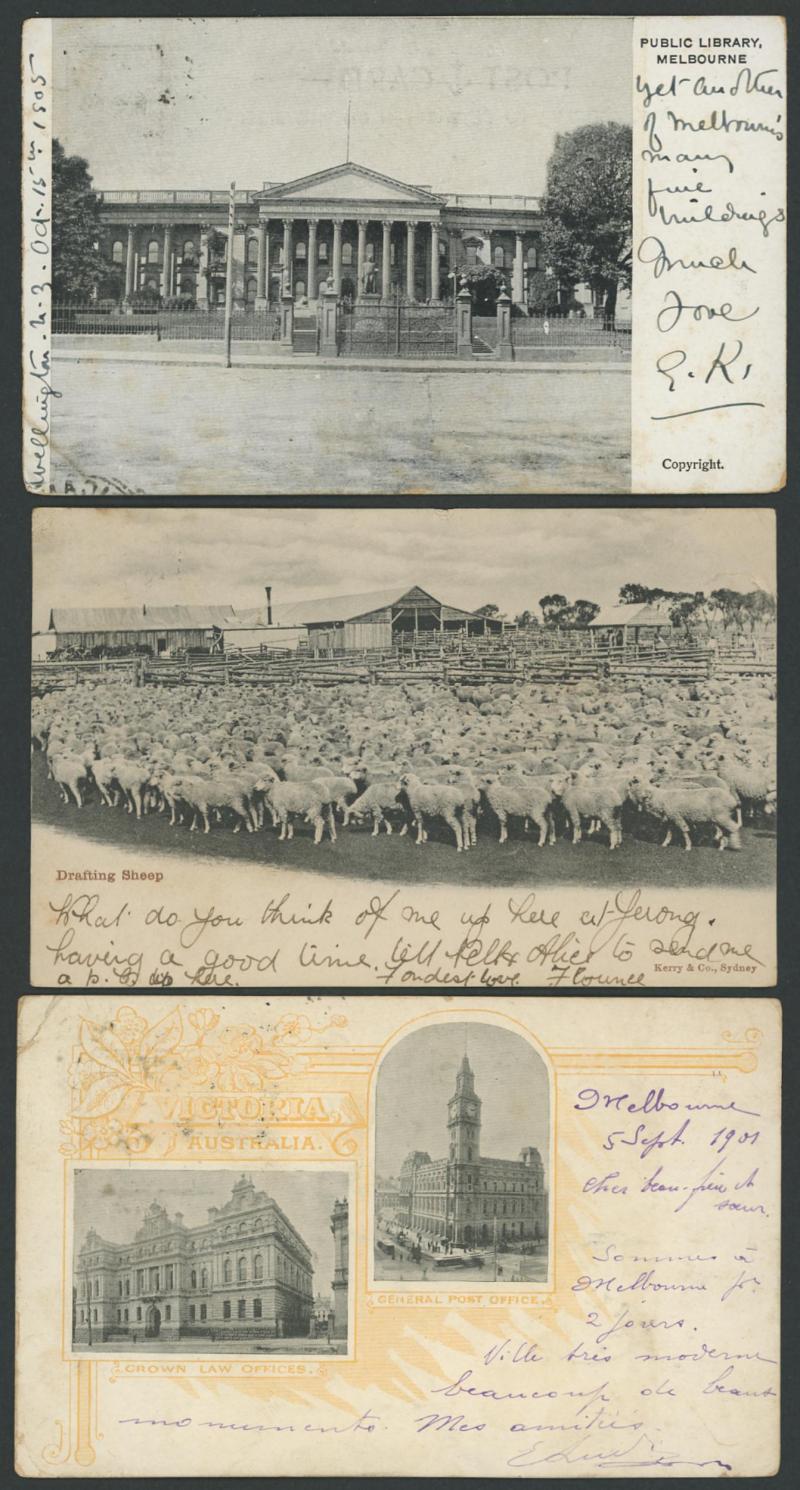 PUBLIC LIBRARY,
MELBOURNE
Yet another
of Melbourne's
many
fine
buildings
Much
Love
G. K.
Copyright.
Wellington. N.Z. Oct. 15th 1905
Drafting Sheep
What do you think of me up here at Yerong.
having a good time. tell Nell & Alice to send me
a p.c. up here. Fondest love Flounce
Kerry & Co., Sydney
VICTORIA,
AUSTRALIA.
GENERAL POST OFFICE.
CROWN LAW OFFICES.
Melbourne
5 Sept. 1901
Cher beau-frère et
sœur.
Sommes à
Melbourne pr
2 jours.
Ville très moderne
beaucoup de beaux
monuments. Mes amitiés.